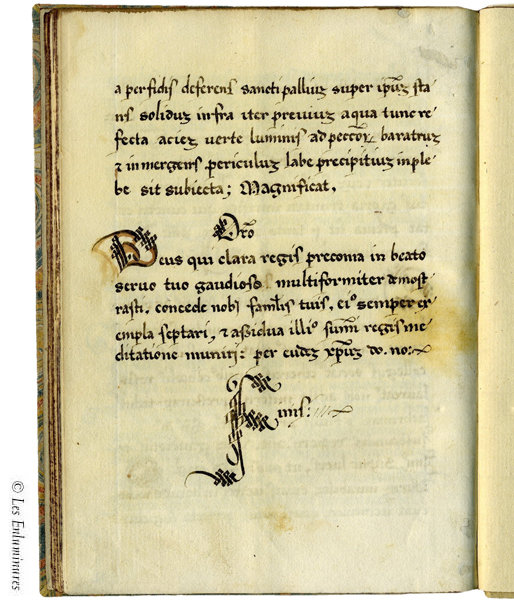 a perfidis deferens sancti palliuʒ super ipsuʒ sta
ns solidus infra iter previuʒ aqua tunc re
fecta acieʒ verte luminis ad peccōrʒ baratruʒ
⁊ inmergens periculus labe precipitiuʒ in ple
be sit subiecta; Magnificat.
Orō
Deus qui clara regis preconia in beato
seruo tuo gaudioso multiformiter demōst
rasti, concede nobꝭ famłis tuis, ei⁹ semper ex
empla septari, ⁊ assidua illi⁹ sum̄i regis me
ditatione muniri: per eūdeʒ xp̄uʒ do. no:
Finis:
© Les Enluminures